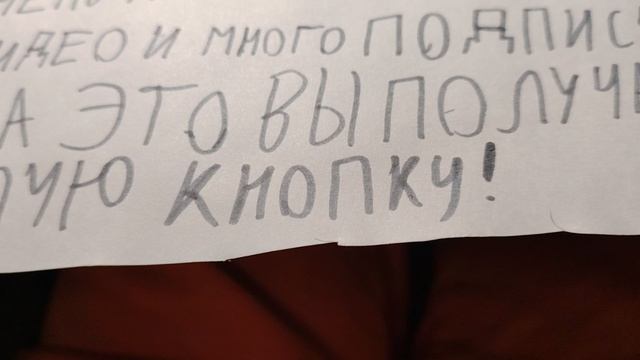 ИДЕО И МНОГО ПОДПИС
А ЭТО ВЫ ПОЛУЧ
КНОПКУ!